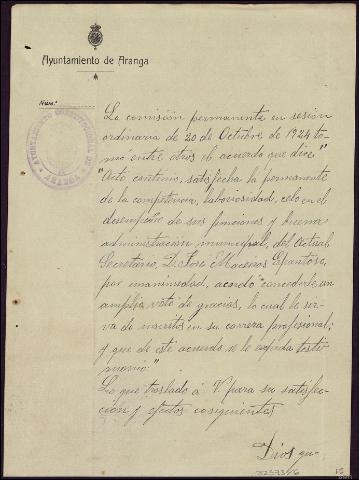 Ayuntamiento de Aranga
Núm.
AYUNTAMIENTO CONSTITUCIONAL DE
ARANGA
La comisión permanente en sesión
ordinaria de 20 de Octubre de 1924 to-
mó entre otros el acuerdo que dice:"
"Acto continuo, satisfecha la permanente
de la competencia, laboriosidad, celo en el
desempeño de sus funciones y buena
administración municipal, del actual
Secretario, D. José Maceiras
por unanimidad, acordó concederle un
amplio voto de gracias, lo cual le ser-
va de meritos en su carrera profesional;
y que de este acuerdo se le expida testi-
monio."
Lo que traslado á V. para su satisfac-
ción y efectos consiguientes
Dios gu-